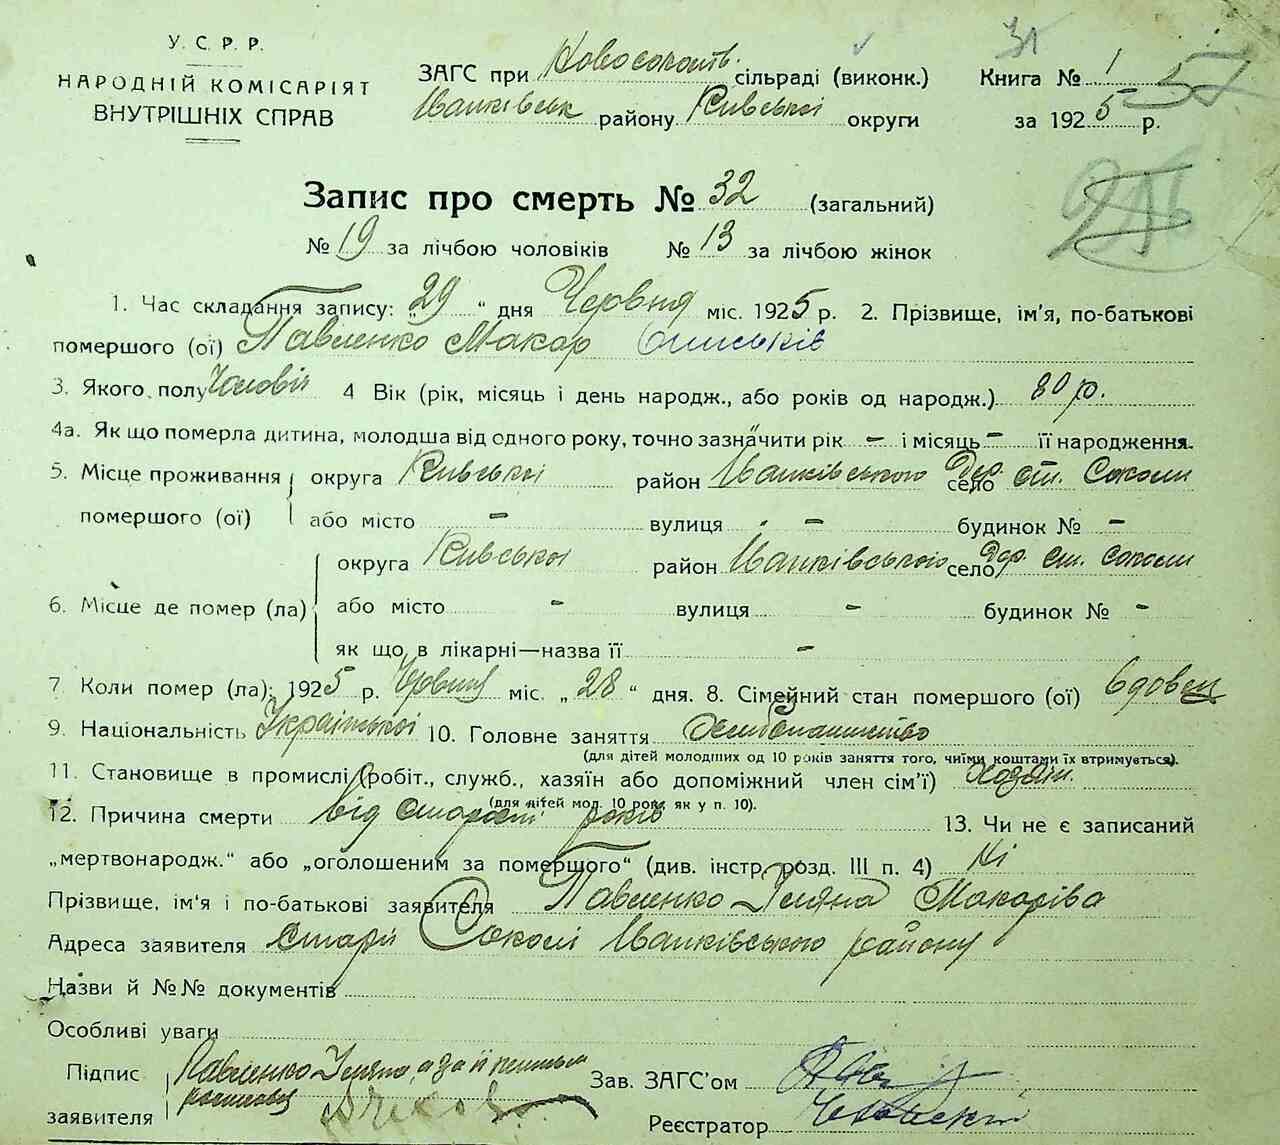 У. С. Р. Р.
НАРОДНІЙ КОМІСАРІЯТ
ВНУТРІШНІХ СПРАВ
ЗАГС при сільраді (виконк.)
Іванківськ району Київської округи
Книга № 1
за 1925 р.
57
Запис про смерть № 32 (загальний)
№ 19 за лічбою чоловіків № 13 за лічбою жінок
1. Час складання запису: „29“ дня Червня міс. 1925 р. 2. Прізвище, ім'я, по-батькові
помершого (ої) Павленко Макар
3. Якого полу Чоловіч 4 Вік (рік, місяць і день народж., або років од народж.) 80 р.
4а. Як що померла дитина, молодша від одного року, точно зазначити рік - і місяць - її народження.
5. Місце проживання помершого (ої) округа Київської район Іванківського село Дер. ст. Соколи
або місто - вулиця - будинок № -
6. Місце де помер (ла) округа Київської район Іванківського село Дер. ст. Соколи
або місто - вулиця - будинок № -
як що в лікарні—назва її -
7 Коли помер (ла): 1925 р. Червня міс. „28“ дня. 8. Сімейний стан помершого (ої) вдовец
9. Національність Української 10. Головне заняття
(для дітей молодших од 10 років заняття того, чиїми коштами їх втримується).
11. Становище в промислі (робіт., служб., хазяїн або допоміжний член сім'ї) Хозяїн
(для дітей мол. 10 рок. як у п. 10).
12. Причина смерти від старости років 13. Чи не є записаний
„мертвонародж.“ або „оголошеним за помершого“ (див. інстр. розд. III п. 4) Ні
Прізвище, ім'я і по-батькові заявителя Павленко Уляна Макарова
Адреса заявителя Стари Соколі Іванківського району
Назви й №№ документів
Особливі уваги
Підпис заявителя Павленко Уляна, а за її
Зав. ЗАГС'ом
Реєстратор